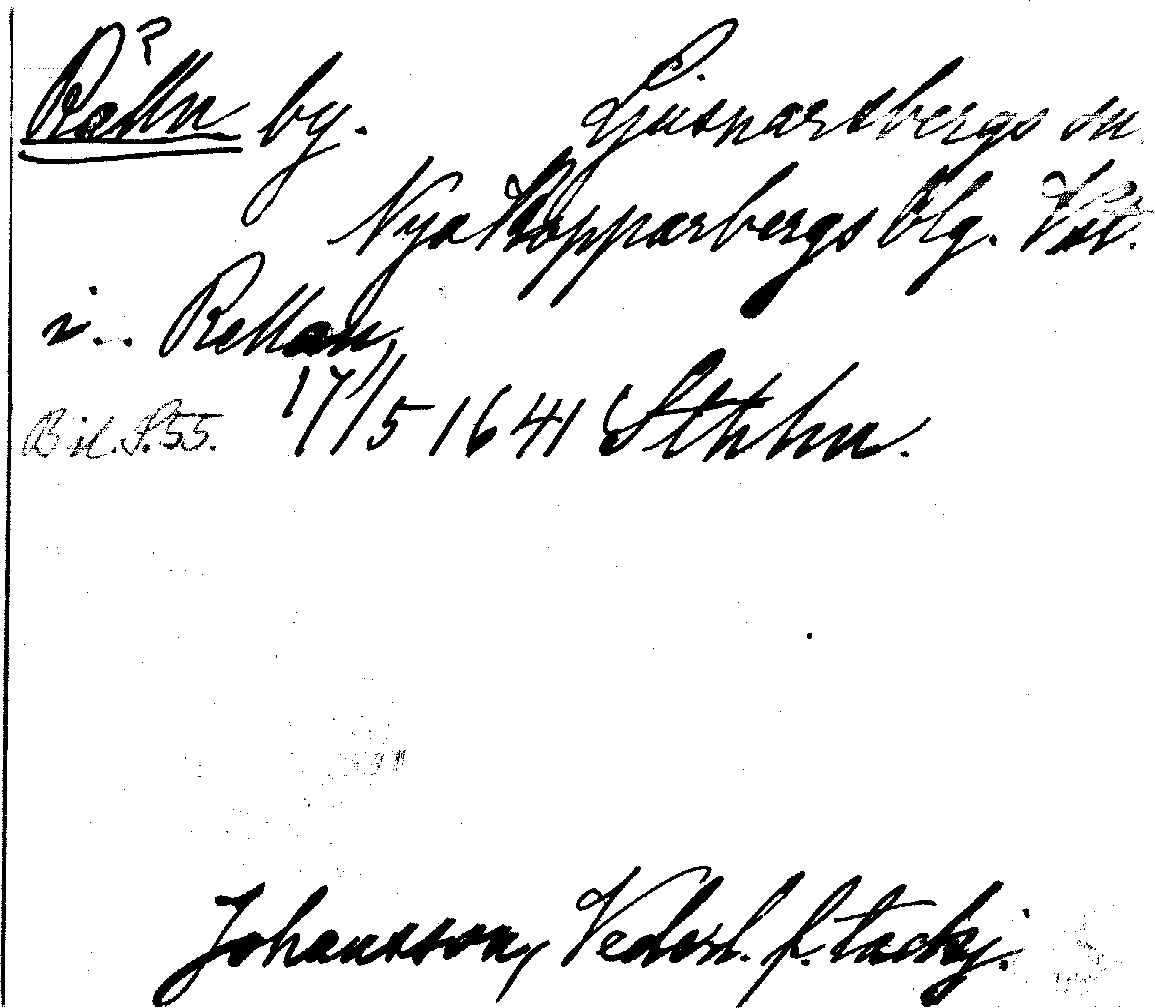 Rälln? by. Ljusnarsbergs sn
Nya Kopparbergs blg. Vstm.
i.. Rellan,
Bil. S. 55. 17/5 1641 Sthlm.
Johansson, Vederl. f. tackj.